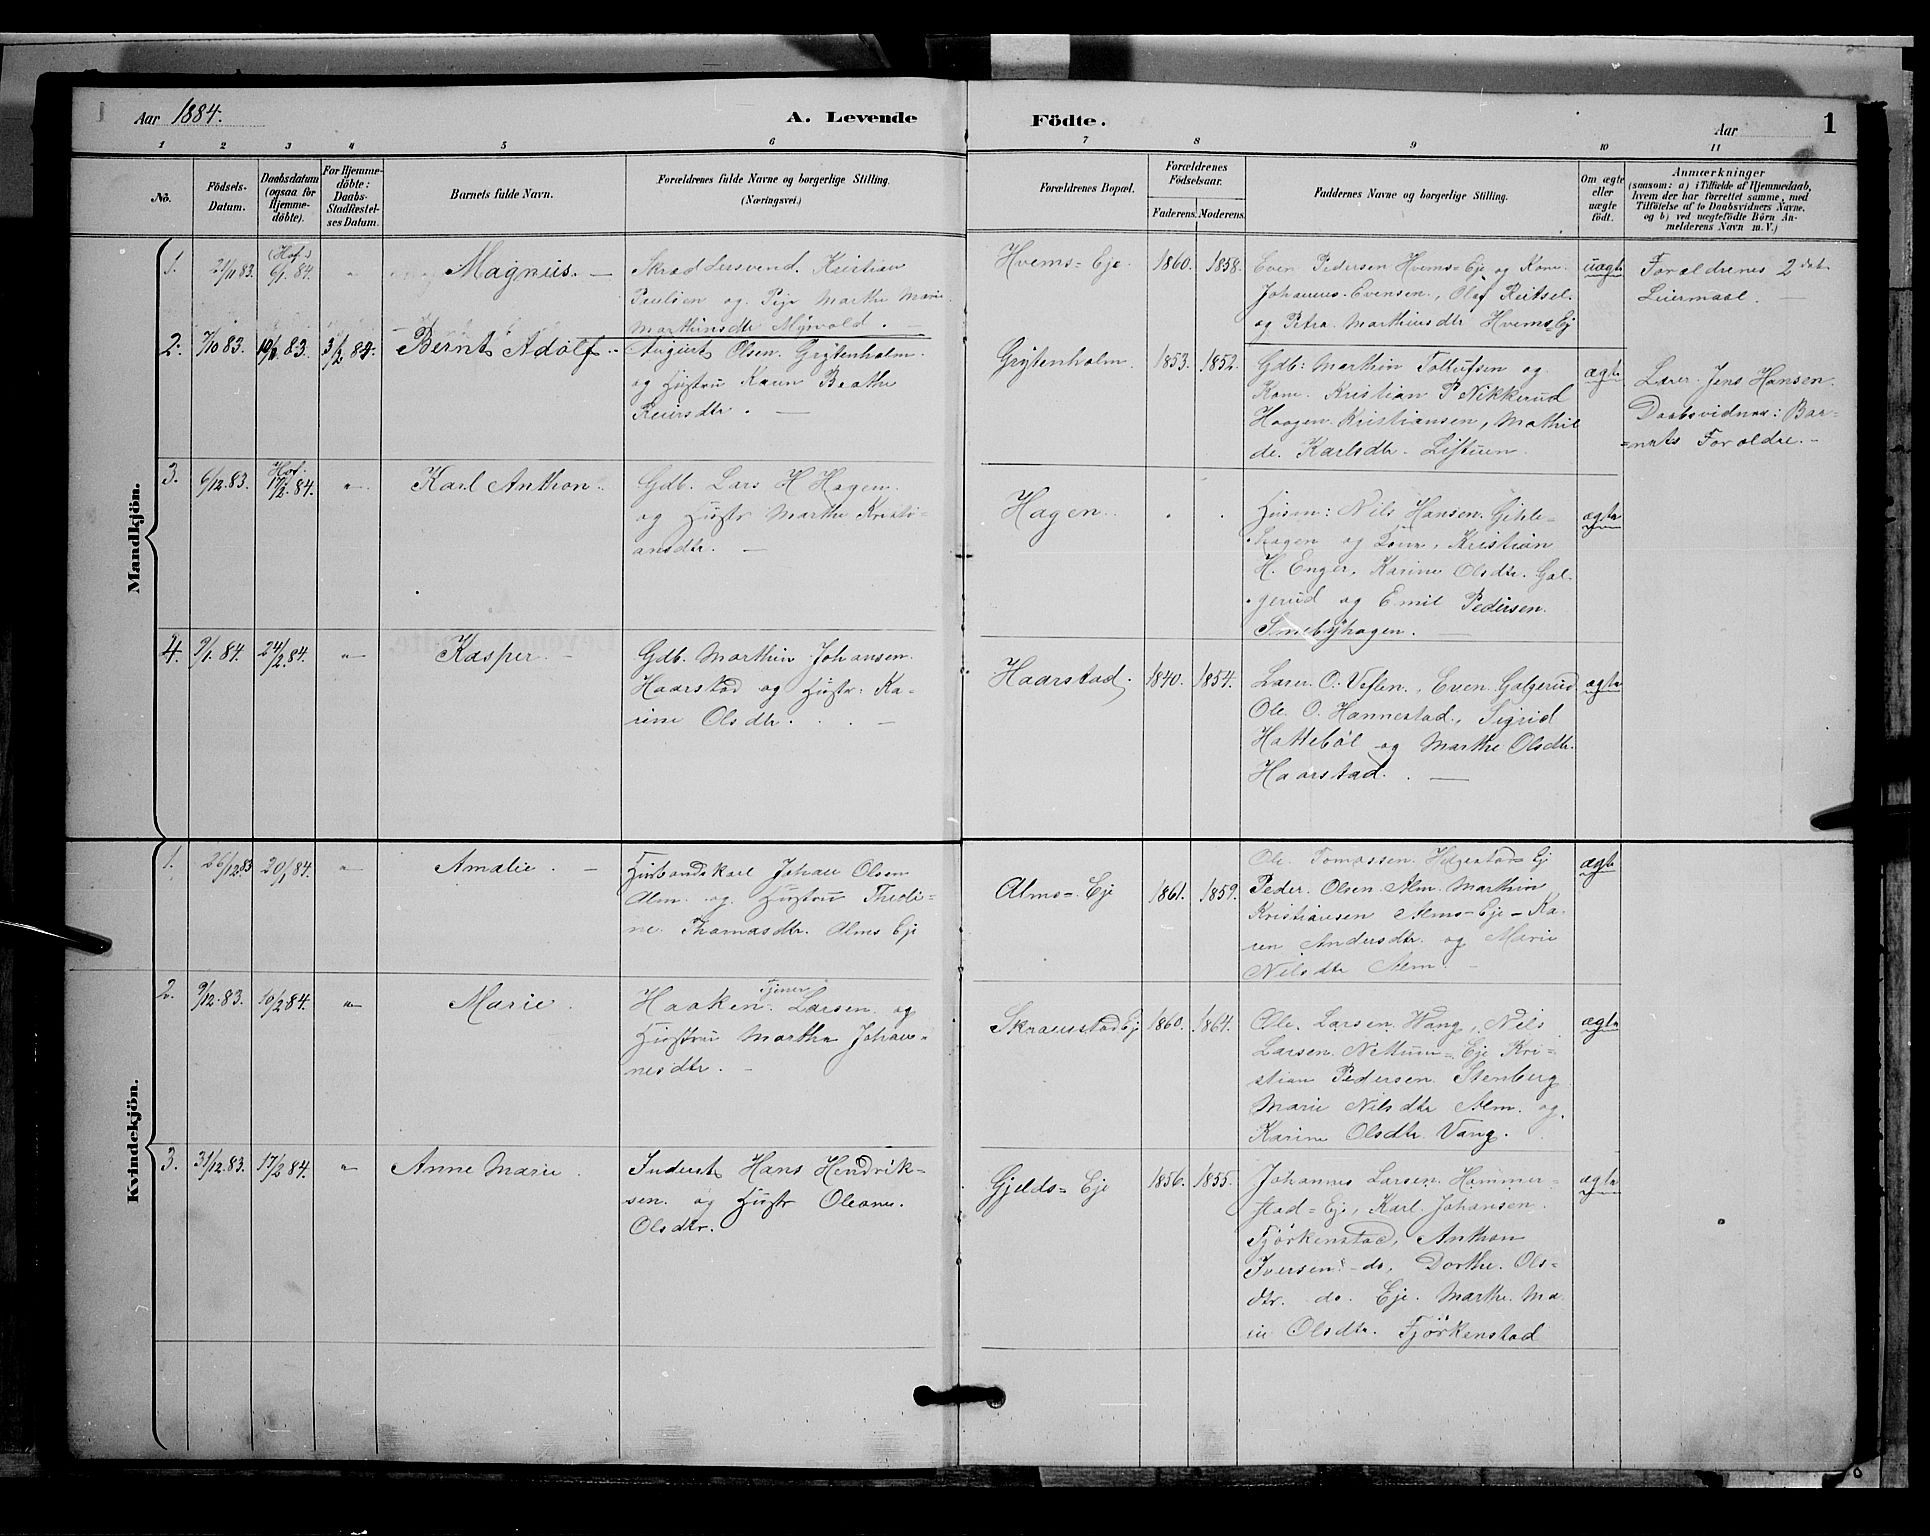 Aar 1884.
A. Levende Födte.
Aar
1
1 2 3 4 5 6 7 8 9 10 11
No.
Födsels-
Datum.
Daabsdatum
(ogsaa for
Hjemme-
döbte).
For Hjemme-
döbte:
Daabs-
Stadfæstel-
ses Datum.
Barnets fulde Navn.
Forældrenes fulde Navne og borgerlige Stilling.
(Næringsvei.)
Forældrenes Bopæl.
Forældrenes
Födselsaar.
Faderens. Moderens.
Faddernes Navne og borgerlige Stilling.
Om ægte
eller
uægte
født.
Anmærkninger
(saasom: a) i Tilfælde af Hjemmedaab,
hvem der har forrettet samme, med
Tilföielse af to Daabsvidners Navne,
og b) ved uægtefödte Börn An-
melderens Navn m. V.)
Mandkjön.
1.
21/11 83.
6/1. 84.
"
Magnius. —
Kristian
Paulsen og Pige Marthe Marie
Marthinsdtr Myrvold.
Hvems=Eje.
1860.
1858.
Even Pedersen Hvems=Eje og Kone
Johannes Evensen, Olaf Reitsel
og Petra Marthinsdtr Hvems=Ej
uægte
Forældrenes 2det
Leiermaal. —
2.
7/10 83.
83.
3/2 84.
Bernt Adolf.
August Olsen Grytenholm
og Hustru Karen Beathe
Reiersdtr. —
Grytenholm
1853.
1852.
Gdb: Marthin og
Kone Kristian P Nikkerud
Haagen Kristiansen, Mathil
de Karlsdtr.
ægte
Lærer Jens Hansen
Daabsvidner: Bar=
=nets Forældre. —
3.
6/12. 83.
Hof.
17/2. 84.
"
Karl Anthon.
Gdb. Lars H Hagen
og Hustr Marthe Kristi-
ansdtr. —
Hagen.
Husm: Nils Hansen
hagen og Kristian
H. Enger, Karine Olsdtr. Gal-
gerud og Emil Pedersen
Smebyhagen. —
ægte
4.
9/1. 84.
24/2. 84.
"
Kasper. —
Gdb. Marthin Johansen
Haarstad og Hustr: Ka-
rine Olsdtr. —
Haarstad.
1840.
1854.
Lærer O. Veflen, Even Galgerud
Ole O. Hannestad, Sigrid
Hattebøl og Marthe Olsdtr.
Haarstad. —
ægte
Kvindekjön.
1.
26/12.83
20/1 84.
"
Amalie. —
Johan Olsen
Alm og Hustru Theoli-
ne Thomasdtr. Alms Eje
Alms=Eje
1861.
1859.
Ole Tomassen Helgestad=Ej
Peder Olsen Alm Marthin
Kristiansen Alms=Eje – Ka-
ren Andersdtr. og Marie
Nilsdtr Alm. —
ægte
2.
9/12. 83.
10/2 84.
"
Marie.
Tjener
Haaken Larsen og
Hustru Marthe Johan-
nesdtr. —
Skramstad Ej
1860.
1864.
Ole Larsen Wang, Nils
Larsen Nettum=Eje Kri-
stian Pedersen Stenberg
Marie Nilsdtr Alm. og
Karine Olsdtr. Vang.
ægte
3.
31/12. 83.
17/2 84.
"
Anne Marie
Inderst Hans Hendrik-
sen og Hustr Oleane
Olsdtr.
Gjelds=Eje
1856.
1855.
Johannes Larsen Hammer-
stad=Eje, Karl Johansen
Fjørkenstad, Anthon
Iversen do, Dorthe Ols=
dtr. do. Eje. Marthe Ma
rie Olsdtr. Fjørkenstad
ægte